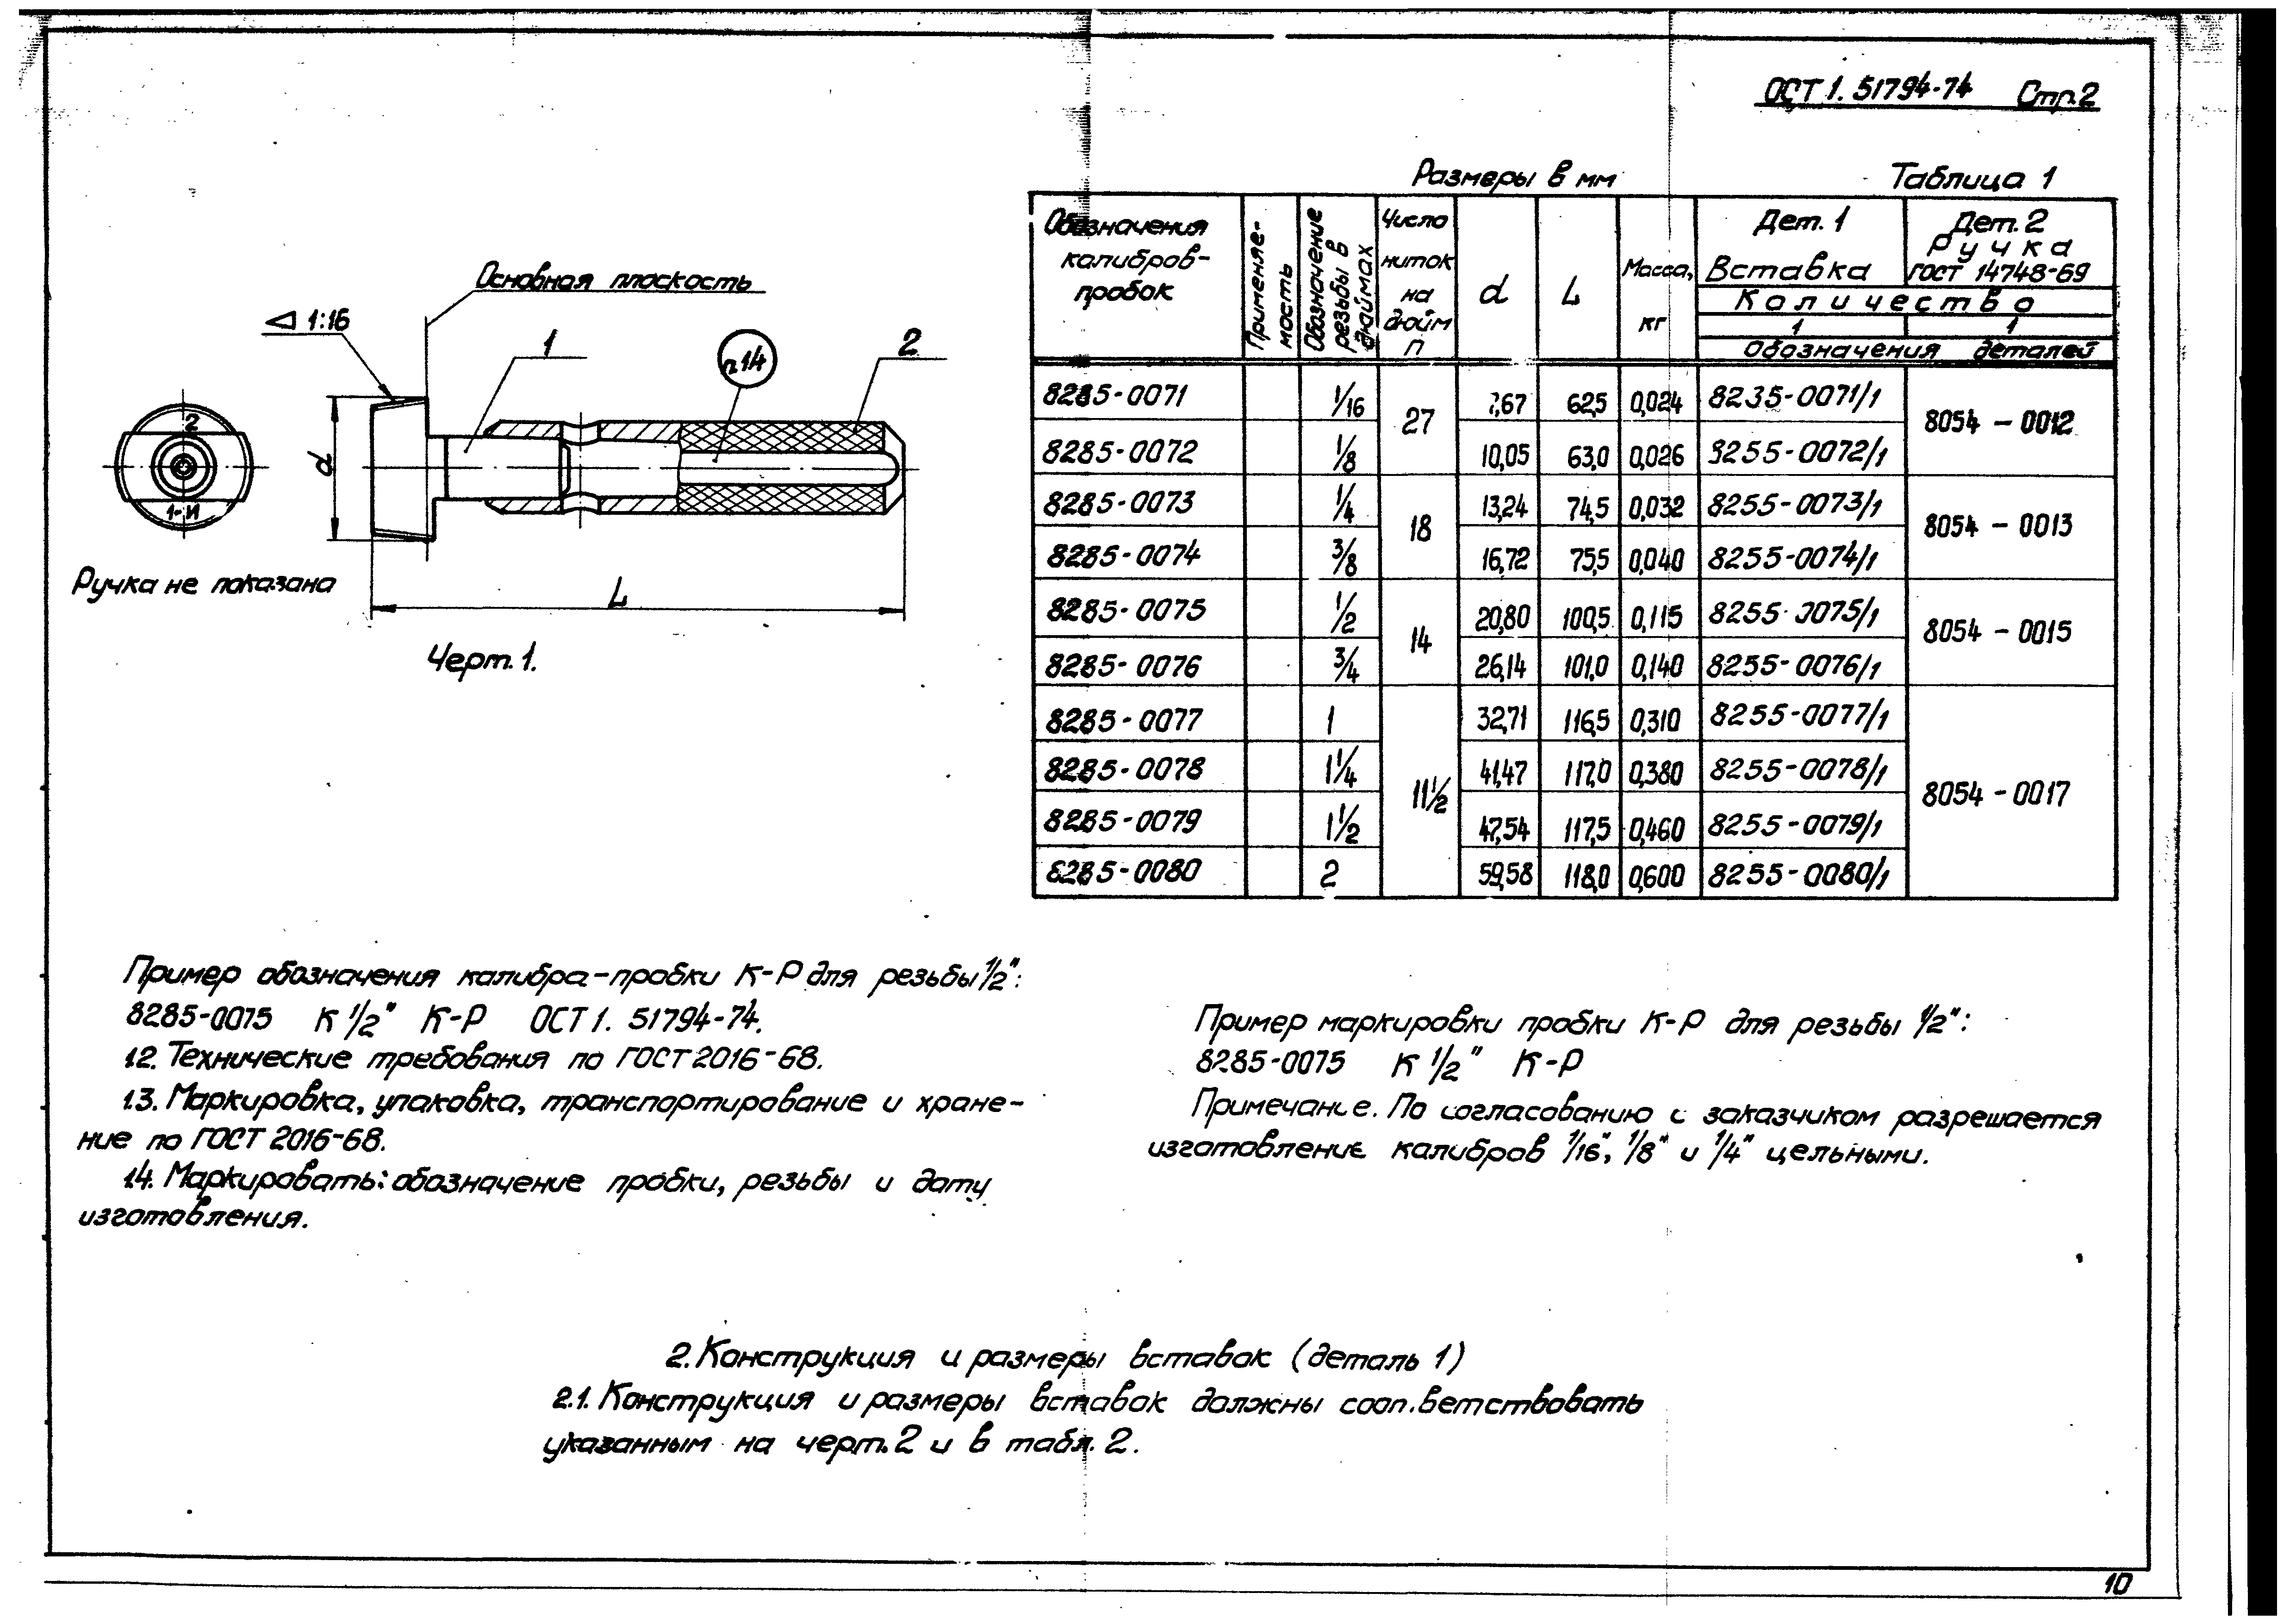 ОСТ 1. 51794-74 Стр.2
Основная плоскость
1:16
1
п.14
2
2
1-И
d
L
Ручка не показана
Черт. 1.
Размеры в мм Таблица 1
Обозначения калибров-пробок
Применяемость
Обозначение резьбы в дюймах
Число ниток на дюйм п
d
L
Масса, кг
Дет. 1 Вставка
Дет. 2 Ручка ГОСТ 14748-69
Количество
1 1
Обозначения деталей
8285-0071 1/16 27 7,67 62,5 0,024 8235-0071/1 8054-0012
8285-0072 1/8 10,05 63,0 0,026 8255-0072/1
8285-0073 1/4 18 13,24 74,5 0,032 8255-0073/1 8054-0013
8285-0074 3/8 16,72 75,5 0,040 8255-0074/1
8285-0075 1/2 14 20,80 100,5 0,115 8255-0075/1 8054-0015
8285-0076 3/4 26,14 101,0 0,140 8255-0076/1
8285-0077 1 11 1/2 32,71 116,5 0,310 8255-0077/1 8054-0017
8285-0078 1 1/4 41,47 117,0 0,380 8255-0078/1
8285-0079 1 1/2 47,54 117,5 0,460 8255-0079/1
8285-0080 2 59,58 118,0 0,600 8255-0080/1
Пример обозначения калибра-пробки К-Р для резьбы 1/2":
8285-0075 К 1/2" К-Р ОСТ 1. 51794-74.
1.2. Технические требования по ГОСТ 2016-68.
1.3. Маркировка, упаковка, транспортирование и хране-
ние по ГОСТ 2016-68.
1.4. Маркировать: обозначение пробки, резьбы и дату
изготовления.
Пример маркировки пробки К-Р для резьбы 1/2":
8285-0075 К 1/2" К-Р
Примечание. По согласованию с заказчиком разрешается
изготовление калибров 1/16", 1/8" и 1/4" цельными.
2. Конструкция и размеры вставок (деталь 1)
2.1. Конструкция и размеры вставок должны соответствовать
указанным на черт. 2 и в табл. 2.
10